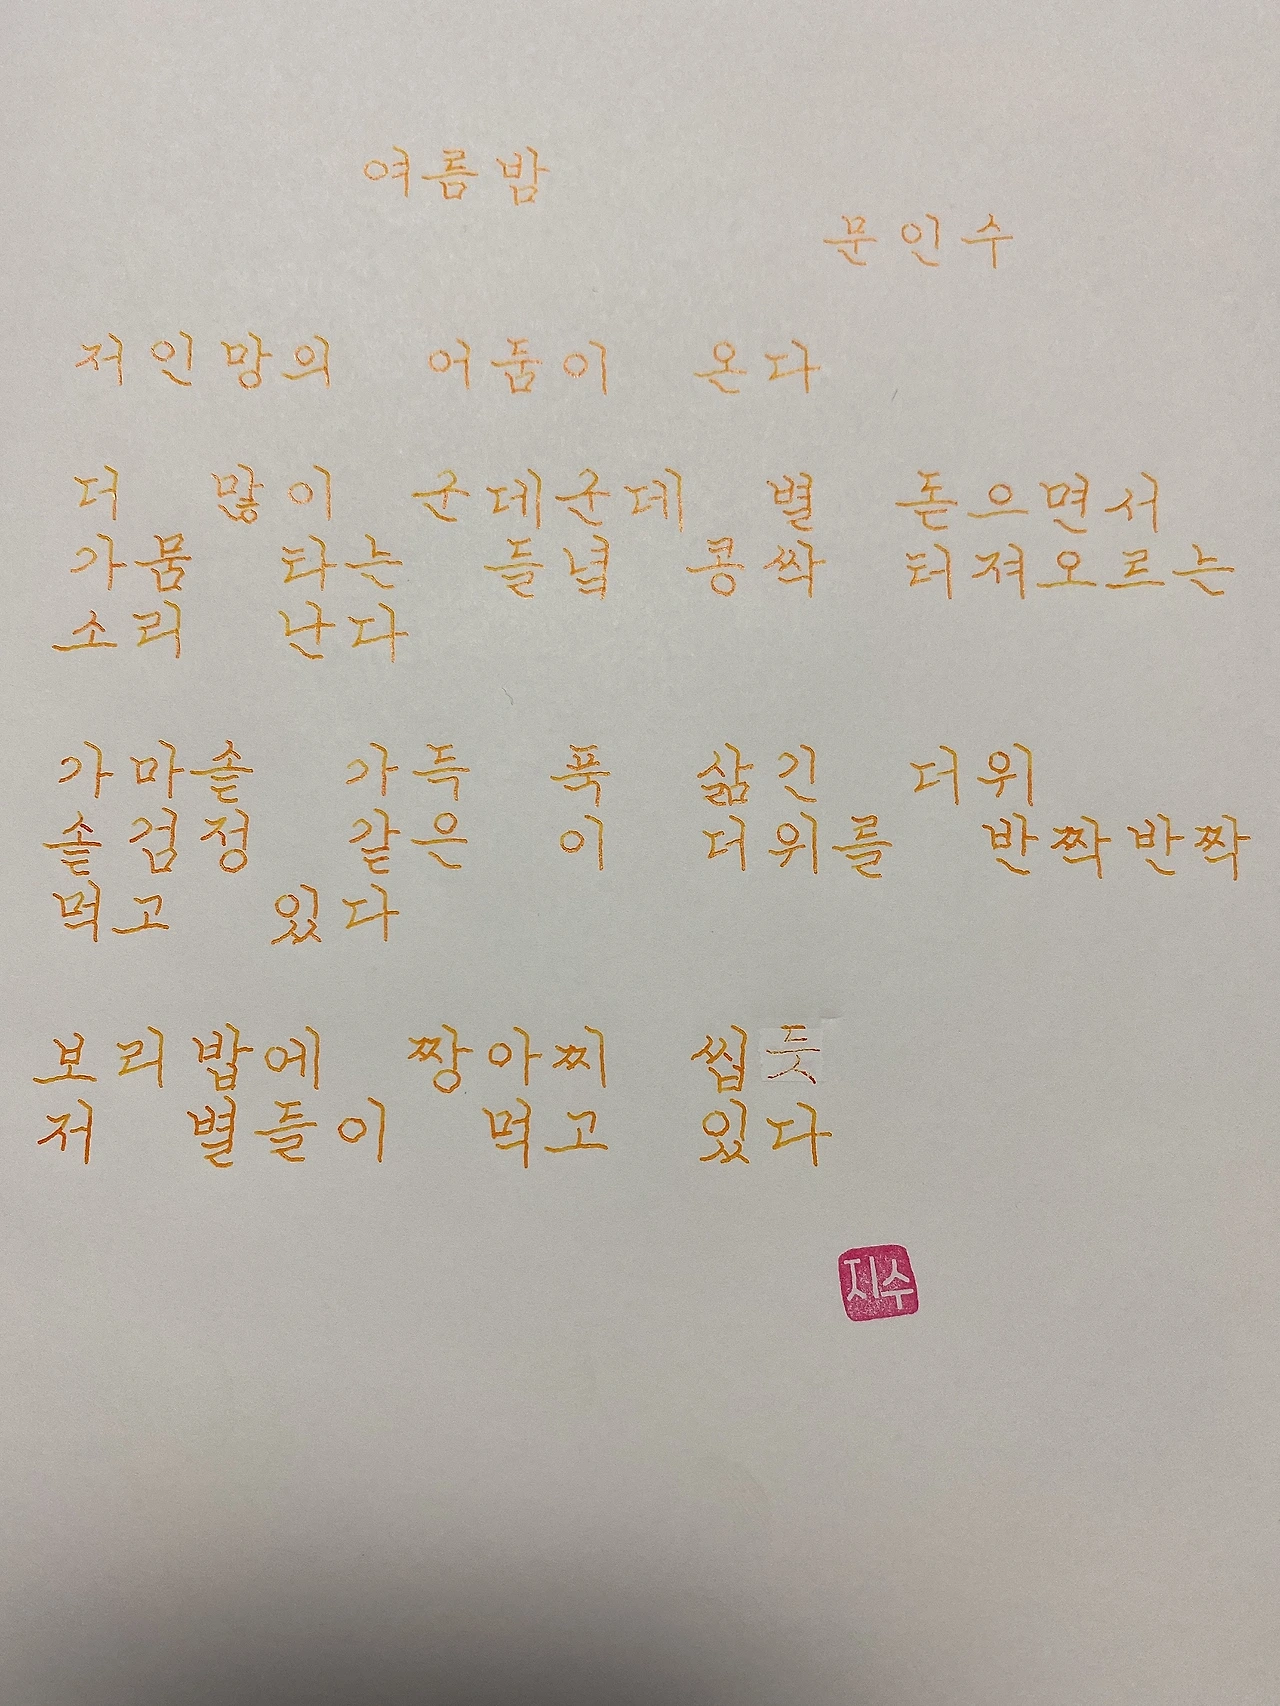 여름밤
문인수
저인망의 어둠이 온다
더 많이 군데군데 별 돋으면서
가뭄 타는 들녘 콩싹 터져오르는
소리 난다
가마솥 가득 푹 삶긴 더위
솥검정 같은 이 더위를 반짝반짝
먹고 있다
보리밥에 짱아찌 씹듯
저 별들이 먹고 있다
지수